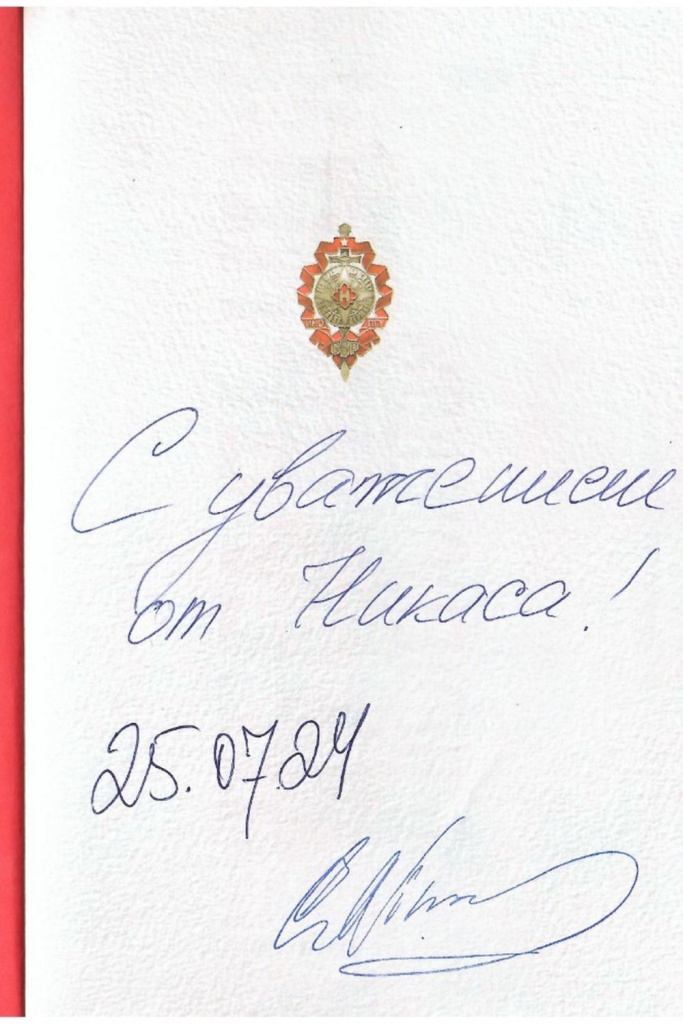 С уважением
от Никаса!
25.07.24